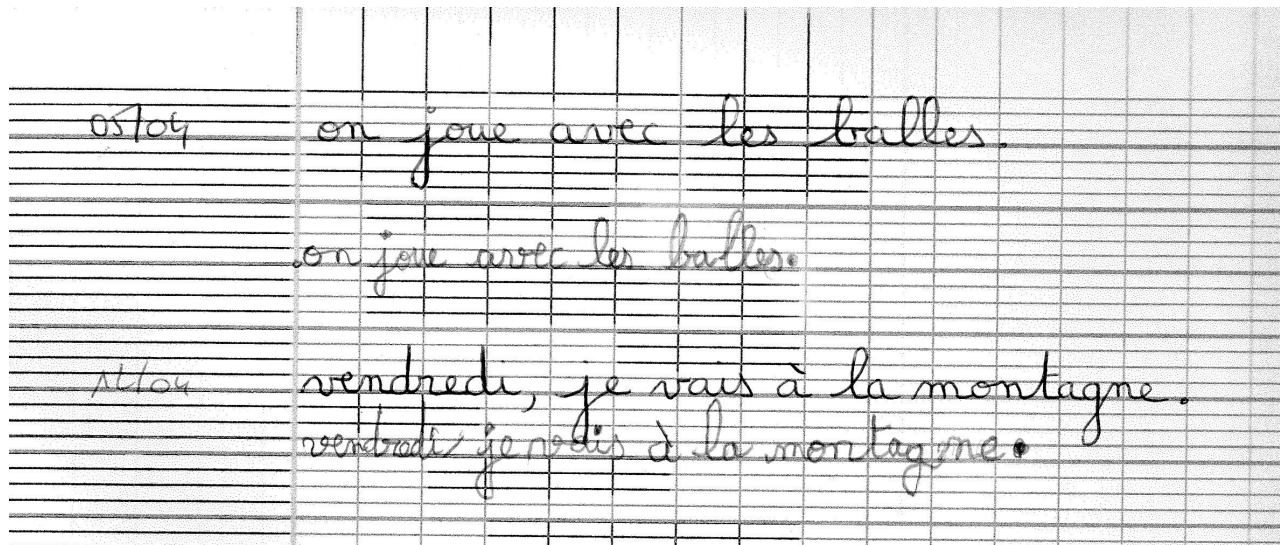 05/04 on joue avec les balles.
on joue avec les balles.
12/04 vendredi, je vais à la montagne.
vendredi, je vais à la montagne.